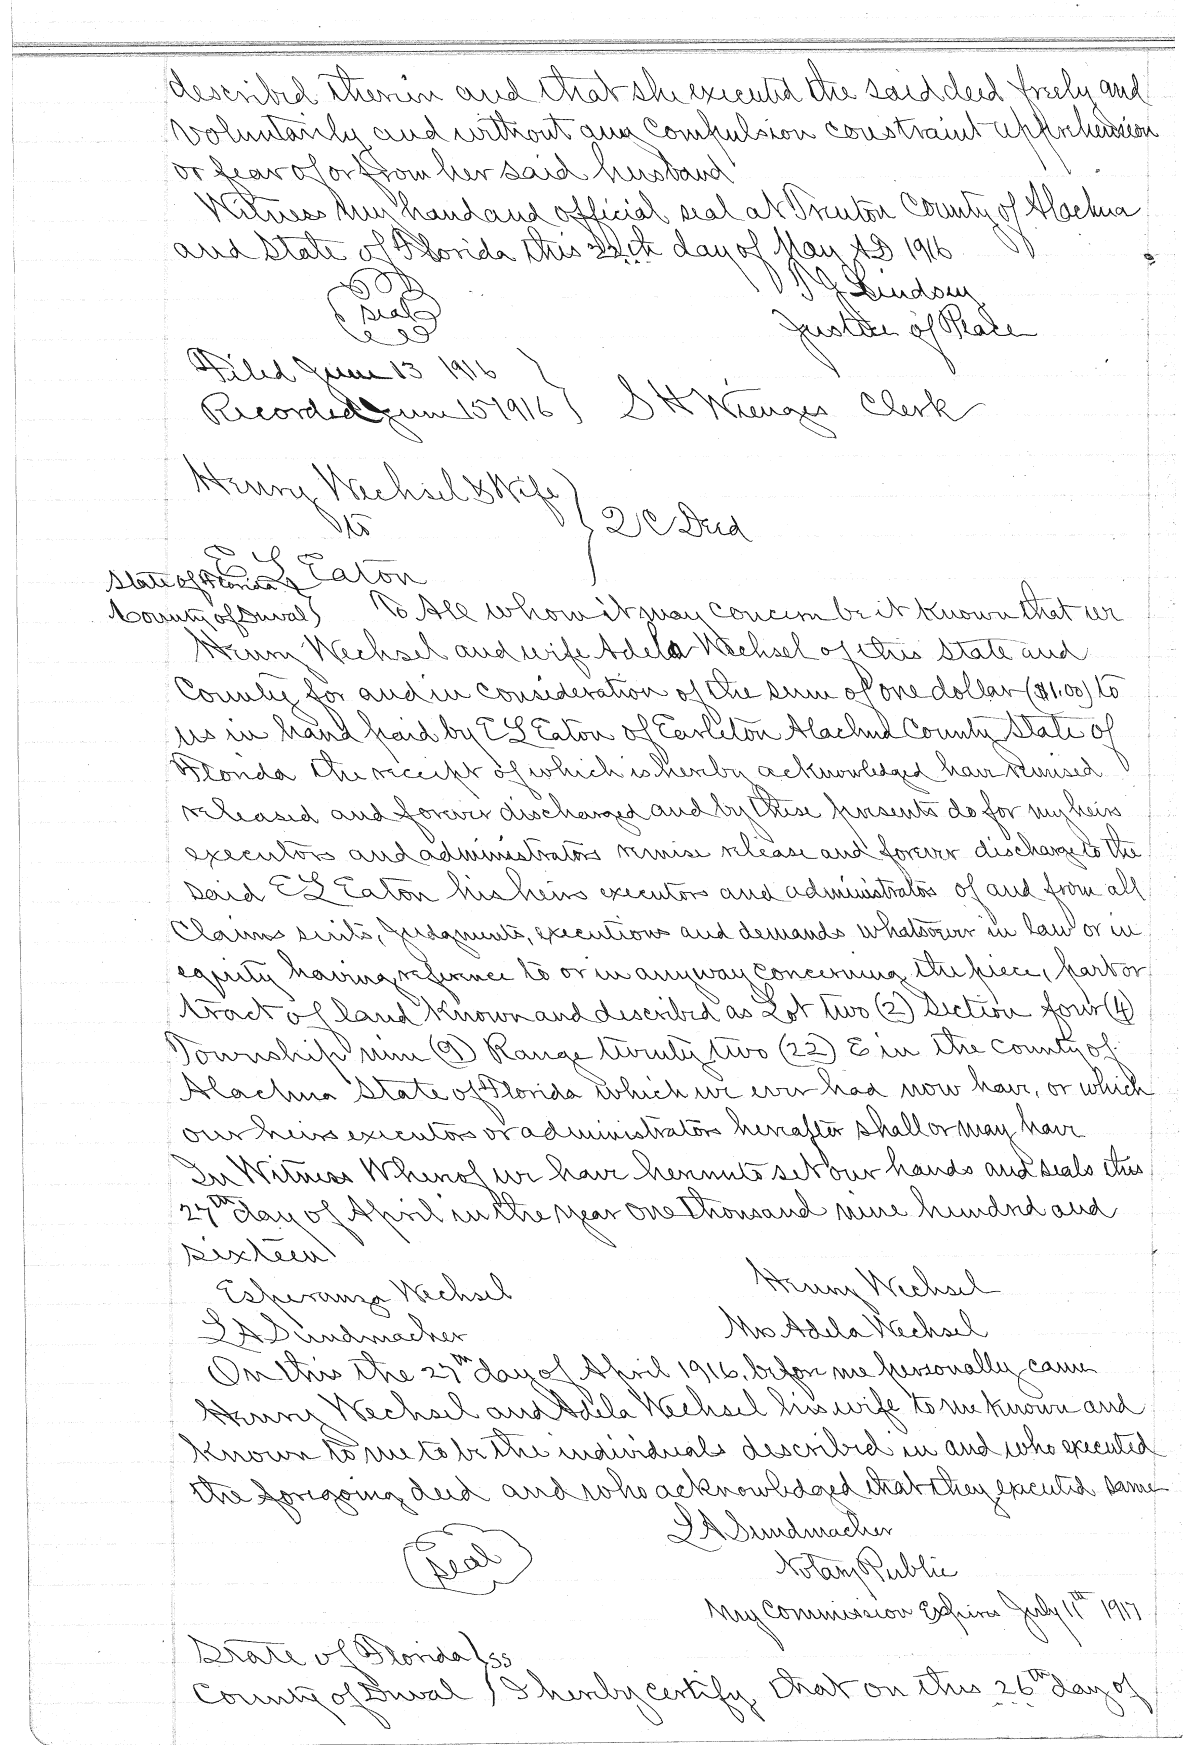 described therein and that she executed the said deed freely and
voluntarily and without any compulsion constraint apprehension
or fear of or from her said husband
Witness my hand and official seal at Trenton County of Alachua
and State of Florida this 22th day of May AD 1916
T J Lindsey
Seal
Justice of Peace
Filed June 13 1916
Recorded June 15 1916 } S H Wienges Clerk
Henry Wechsel & Wife
to } Q C Deed
E L Eaton
State of Florida
County of Duval } To All whom it may concern be it known that we
Henry Wechsel and wife Adela Wechsel of this State and
County for and in consideration of the sum of one dollar ($1.00) to
us in hand paid by E L Eaton of Earleton Alachua County State of
Florida the receipt of which is hereby acknowledged have remised
released and forever discharged and by these presents do for my heirs
executors and administrators remise release and forever discharge to the
said E L Eaton his heirs executors and administrators of and from all
Claims suits, Judgments, executions and demands whatsoever in law or in
equity having reference to or in anyway concerning the piece, part or
tract of land known and described as Lot two (2) Section four (4)
Township nine (9) Range twenty two (22) E in the county of
Alachua State of Florida which we ever had now have, or which
our heirs executors or administrators hereafter shall or may have
In Witness Whereof we have hereunto set our hands and seals this
27th day of April in the year one thousand nine hundred and
sixteen
Esperanza Wechsel Henry Wechsel
L A Sundmacher Mrs Adela Wechsel
On this the 27th day of April 1916, before me personally came
Henry Wechsel and Adela Wechsel his wife to me known and
known to me to be the individuals described in and who executed
the foregoing deed and who acknowledged that they executed same
L A Sundmacher
Seal
Notary Public
My Commission Expires July 11th 1917
State of Florida } ss
County of Duval } I hereby certify that on this 26th day of